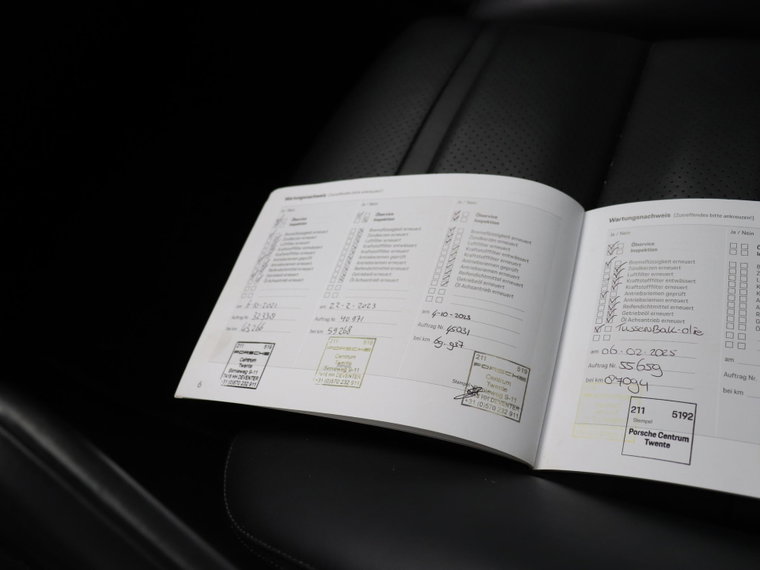 Wartungsnachweis [Zutreffendes bitte ankreuzen!]
Ja / Nein
Ölservice
Inspektion
Bremsflüssigkeit erneuert
Zündkerzen erneuert
Luftfilter erneuert
Kraftstofffilter entwässert
Kraftstofffilter erneuert
Antriebsriemen geprüft
Antriebsriemen erneuert
Reifendichtmittel erneuert
Getriebeöl erneuert
Öl Achsantrieb erneuert
am
Auftrag Nr.
bei km
211
PORSCHE
Centrum
Twente
7418 HH DEVENTER
+31 (0)570 232 911
6
Ja / Nein
Ölservice
Inspektion
Bremsflüssigkeit erneuert
Zündkerzen erneuert
Luftfilter erneuert
Kraftstofffilter entwässert
Kraftstofffilter erneuert
Antriebsriemen geprüft
Antriebsriemen erneuert
Reifendichtmittel erneuert
Getriebeöl erneuert
Öl Achsantrieb erneuert
am 22-2-2023
Auftrag Nr. 40971
bei km 59268
211
Centrum
Ja / Nein
Ölservice
Inspektion
Bremsflüssigkeit erneuert
Zündkerzen erneuert
Luftfilter erneuert
Kraftstofffilter entwässert
Kraftstofffilter erneuert
Antriebsriemen geprüft
Antriebsriemen erneuert
Reifendichtmittel erneuert
Getriebeöl erneuert
Öl Achsantrieb erneuert
am 4-10-2023
Auftrag Nr. 45031
bei km 69.937
211 519
Centrum
Twente
HH DEVENTER
+31 (0)570 232 911
Wartungsnachweis [Zutreffendes bitte ankreuzen!]
Ja / Nein
Ölservice
Inspektion
Bremsflüssigkeit erneuert
Zündkerzen erneuert
Luftfilter erneuert
Kraftstofffilter entwässert
Kraftstofffilter erneuert
Antriebsriemen geprüft
Antriebsriemen erneuert
Reifendichtmittel erneuert
Getriebeöl erneuert
Öl Achsantrieb erneuert
Tussenbak-olie
am 06-02-2025
Auftrag Nr. 55659
bei km 84094
211 5192
Stempel
Porsche Centrum
Twente
Ja / Nein
am
Auftrag Nr.
bei km